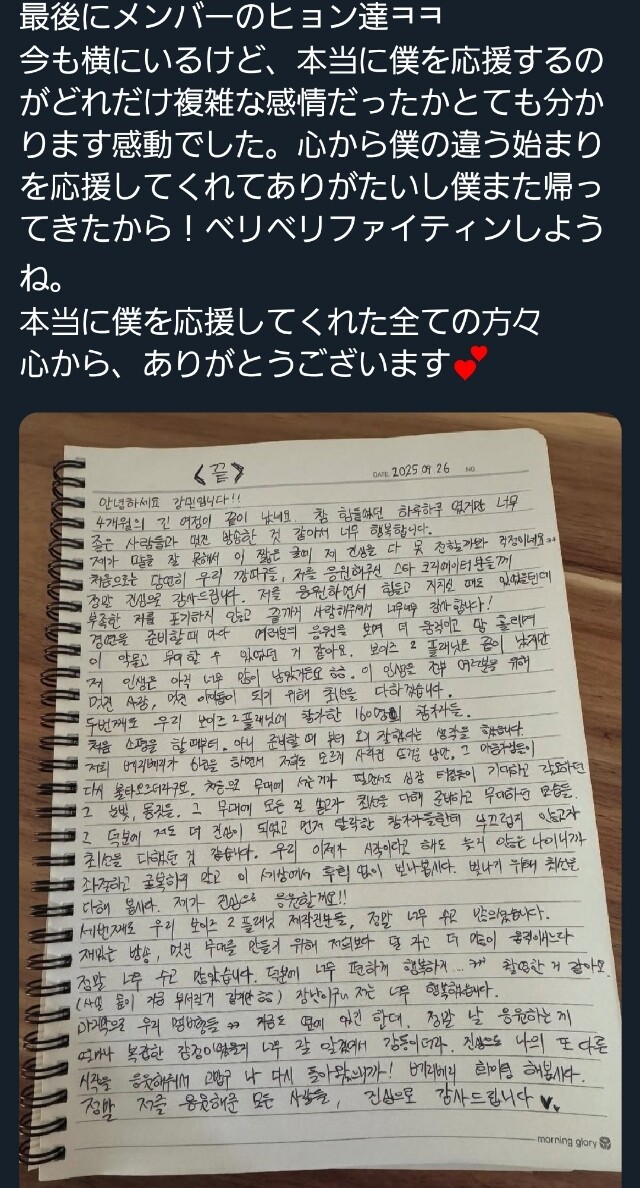 最後にメンバーのヒョン達ㅋㅋ
今も横にいるけど、本当に僕を応援するの
がどれだけ複雑な感情だったかとても分か
ります感動でした。心から僕の違う始まり
を応援してくれてありがたいし僕また帰っ
てきたから！ベリベリファイティンしよう
ね。
本当に僕を応援してくれた全ての方々
心から、ありがとうございます💕
<끝>
DATE 2025.09.26 NO
안녕하세요 강민입니다!!
4개월의 긴 여정이 끝이 났네요. 참 힘들었던 하루하루 였지만 너무
좋은 사람들과 멋진 방송한 것 같아서 너무 행복합니다.
제가 말을 잘 못해서 이 짧은 글에 제 진심을 다 못 전할까봐 걱정이네요
처음으로는 당연히 우리 깡파구들, 저를 응원해주신 스타 크리에이터분들께
정말 진심으로 감사드립니다. 저를 응원하면서 힘들고 지치실 때도 있었을텐데
부족한 저를 포기하지 않고 끝까지 사랑해주셔서 너무너무 감사합니다!
경연을 준비할 때 마다 여러분의 응원을 보며 더 움직이고 땀 흘리며
이 악물고 무대할 수 있었던 거 같아요. 보이즈 2 플래닛은 끝이 났지만
제 인생은 아직 너무 많이 남았거든요 ㅎㅎ. 이 인생을 전부 여러분을 위해
멋진 사람, 멋진 아이돌이 되기 위해 최선을 다하겠습니다.
두번째로 우리 보이즈 2 플래닛에 참가한 160명의 참가자들.
처음 소명을 할 때부터, 아니 준비할 때 부터 오기 잘했다는 생각을 했습니다.
저희 베리베리가 6년을 하면서 저희도 모르게 사라진 뜨거운 낭만, 그 마음가짐들이
다시 불타오르더라구요. 처음으로 무대에 서는거라 떨면서도 심장 터질듯이 기대하고 갈망하던
그 눈빛, 동작들. 그 무대에 모든 걸 쏟고자 최선을 다해 준비하고 무대하던 모습들.
그 덕분에 저도 더 진심이 되었고 먼저 탈락한 참가자들한테 부끄럽지 않고자
최선을 다했던 것 같습니다. 우리 이제가 시작이라고 해도 늦지 않은 나이니까
좌절하고 굴복하지 말고 이 세상에서 후회 없이 빛나봅시다. 빛나기 위해 최선을
다해 봅시다. 제가 진심으로 응원할게요!!
세번째로 우리 보이즈 2 플래닛 제작진분들, 정말 너무 수고 많으셨습니다.
재밌는 방송, 멋진 무대를 만들기 위해 저희보다 덜 자고 더 많이 움직이셨다
정말 너무 수고 많았습니다. 덕분에 너무 편하게 행복하게... ㅋㅋ 촬영한 거 같아요.
(사실 몸이 가끔 부서질거 같지만 ㅎㅎ) 장난이구 저는 너무 행복했습니다.
마지막으로 우리 멤버형들 ㅋㅋ 지금도 옆에 있긴 한데, 정말 날 응원하는게
얼마나 복잡한 감정이었을지 너무 잘 알겠어서 감동이더라. 진심으로 나의 또 다른
시작을 응원해줘서 고맙구 나 다시 돌아왔으니까! 베리베리 화이팅 해봅시다.
정말 저를 응원해준 모든 사람들, 진심으로 감사드립니다 ♥
morning glory